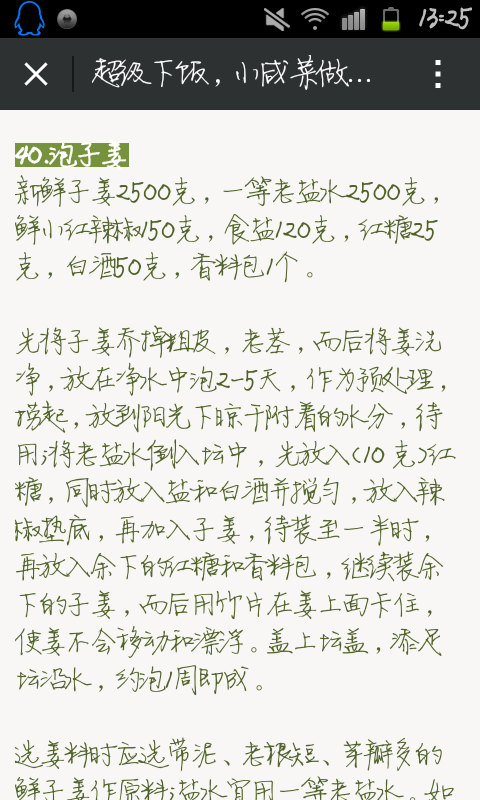 13:25
超级下饭，小咸菜做...
40.泡子姜
新鲜子姜2500克，一等老盐水2500克，
鲜小红辣椒150克，食盐120克，红糖25
克，白酒50克，香料包1个。
先将子姜乔掉粗皮，老茎，而后将姜洗
净，放在净水中泡2-5天，作为预处理，
捞起，放到阳光下晾干附着的水分，待
用;将老盐水倒入坛中，先放入(10克)红
糖，同时放入盐和白酒并搅匀，放入辣
椒垫底，再加入子姜，待装至一半时，
再放入余下的红糖和香料包，继续装余
下的子姜，而后用竹片在姜上面卡住，
使姜不会移动和漂浮。盖上坛盖，添足
坛沿水，约泡1周即成。
选姜料时应选带泥、老根短、芽瓣多的
鲜子姜作原料;盐水宜用一等老盐水。如